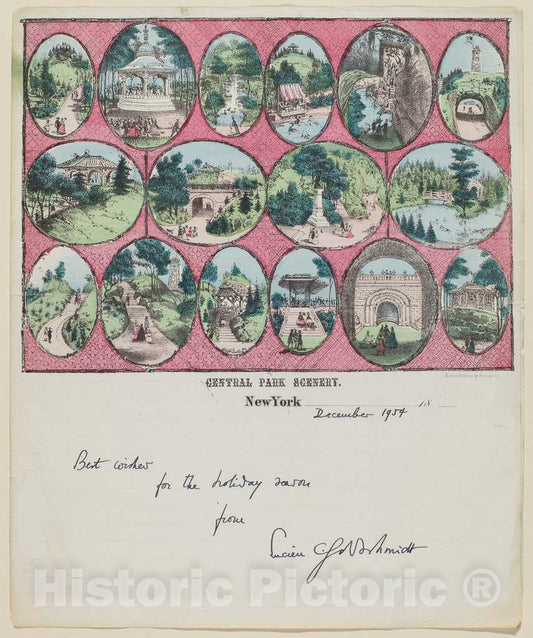 CENTRAL PARK SCENERY.
NewYork December 1954 18
Best wishes
for the holiday season
from
Lucien Goldschmidt
Historic Pictoric ®